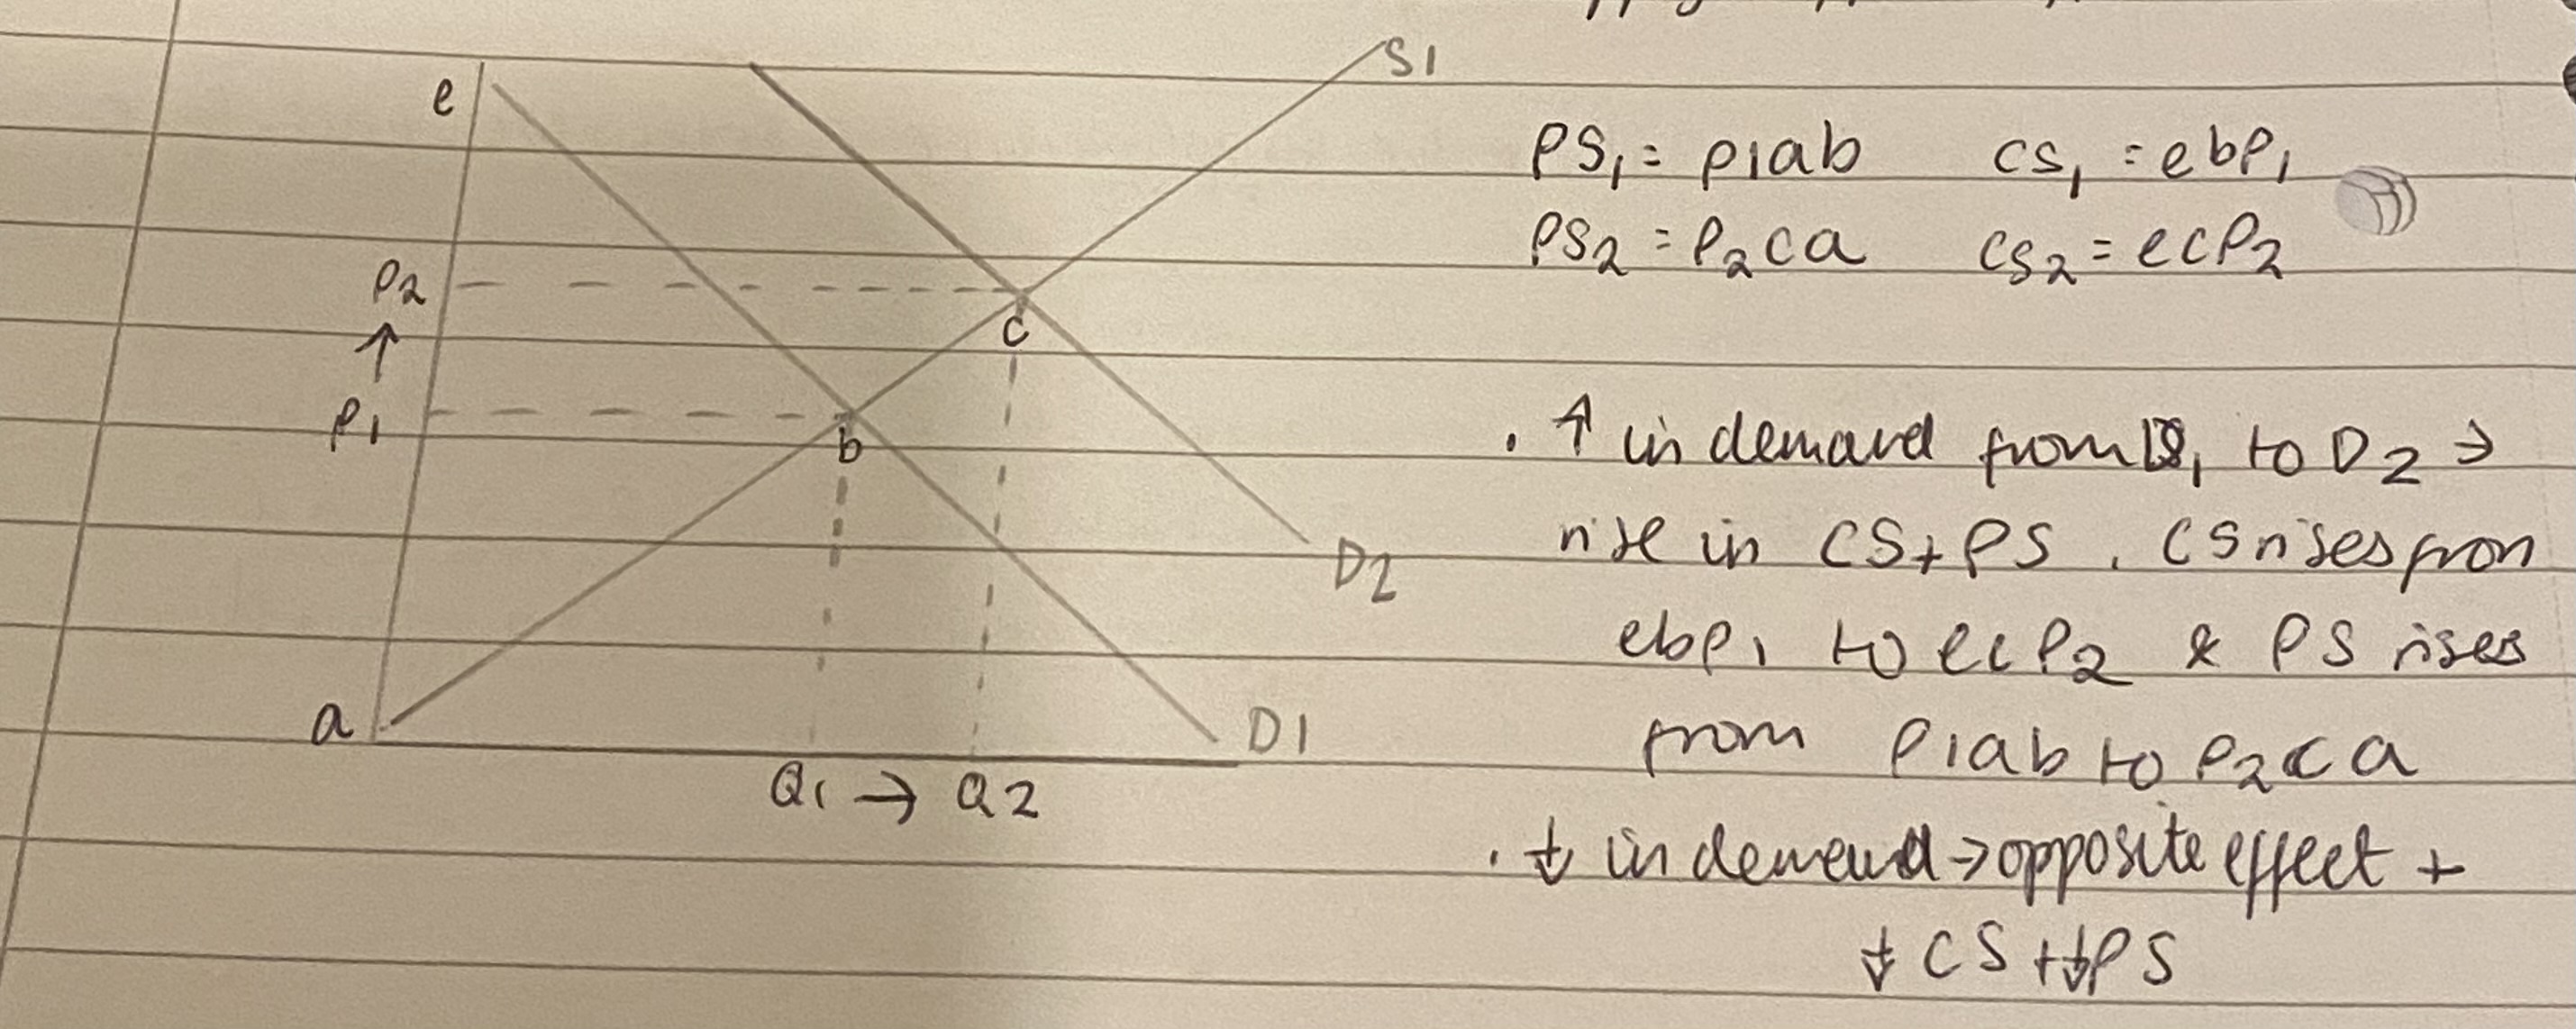 S1
e
PS1 = P1ab    CS1 = ebP1
PS2 = P2ca    CS2 = ecP2
P2
↑
c
P1
b
. ↑ in demand from D1 to D2 →
rise in CS + PS . CS rises from
D2
ebP1 to ecP2 & PS rises
from P1ab to P2ca
a
D1
Q1 → Q2
. ↓ in demand → opposite effect +
↓ CS + ↓ PS